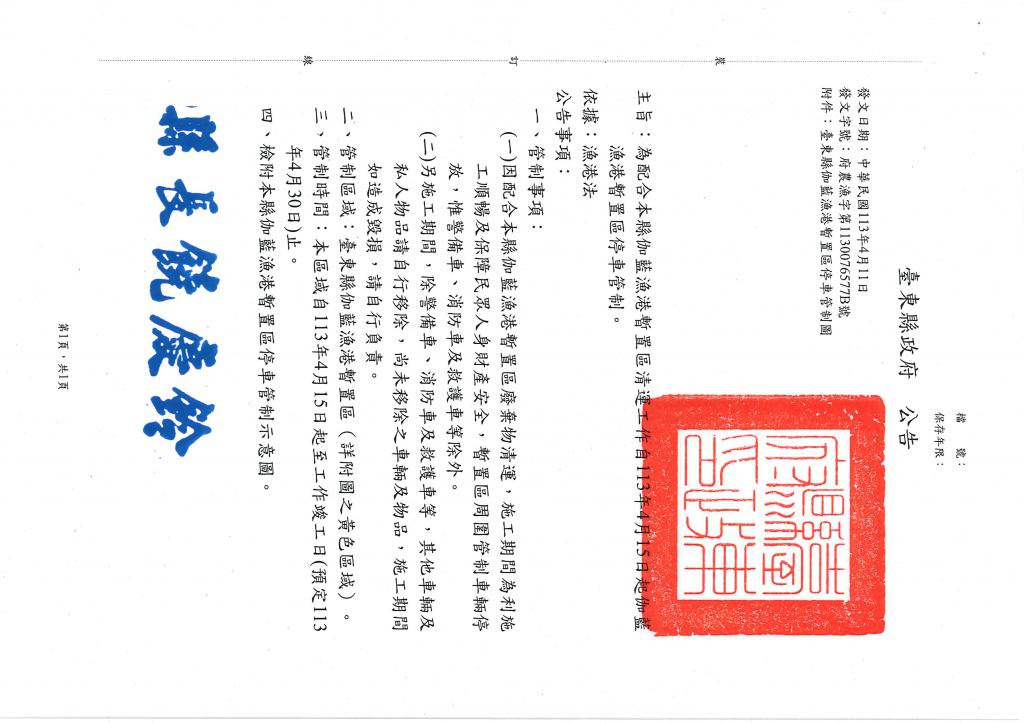 檔　　號：
保存年限：
臺東縣政府　公告
發文日期：中華民國113年4月11日
發文字號：府農漁字第1130076577B號
附件：臺東縣伽藍漁港暫置區停車管制圖
主旨：為配合本縣伽藍漁港暫置區清運工作自113年4月15日起伽藍
漁港暫置區停車管制。
依據：漁港法
公告事項：
一、管制事項：
(一)因配合本縣伽藍漁港暫置區廢棄物清運，施工期間為利施
工順暢及保障民眾人身財產安全，暫置區周圍管制車輛停
放，惟警備車、消防車及救護車等除外。
(二)另施工期間，除警備車、消防車及救護車等，其他車輛及
私人物品請自行移除，尚未移除之車輛及物品，施工期間
如造成毀損，請自行負責。
二、管制區域：臺東縣伽藍漁港暫置區（詳附圖之黃色區域）。
三、管制時間：本區域自113年4月15日起至工作竣工日(預定113
年4月30日)止。
四、檢附本縣伽藍漁港暫置區停車管制示意圖。
縣長饒慶鈴
臺東縣政府印
裝
訂
線
第1頁，共1頁